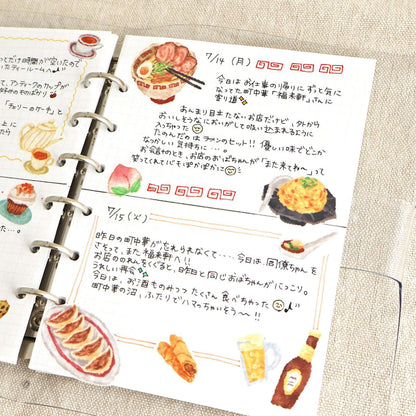 ってだけ時間が空いたので
いたティールームへ♪
って、アンティークのカップが
「チェリーのケーキ」と
上に
たら
7/14（月）
今日は お仕事の帰りに ずっと気に
なってた町中華「福来軒」さんに
寄り道
あんまり目立たないお店だけど、外から
おいしそうなにおいがしてて吸い込まれるように
入っちゃった
たのんだのは ラーメンのセット!! 優しい味でどこか
なつかしい 気持ちに…。
お会計のとき、お店のおばちゃんが「また来てね〜」って
笑ってくれて心もぽかぽかに
7/15（火）
昨日の町中華が忘れられなくて……今日は、同僚ちゃんを
さそって、また福来軒へ!!
お店ののれんをくぐると、昨日と同じおばちゃんがにっこり。
うれしい再会
今日は、お酒ものみつつ たくさん 食べちゃった
町中華の沼、ふたりでハマっちゃいそう〜!!